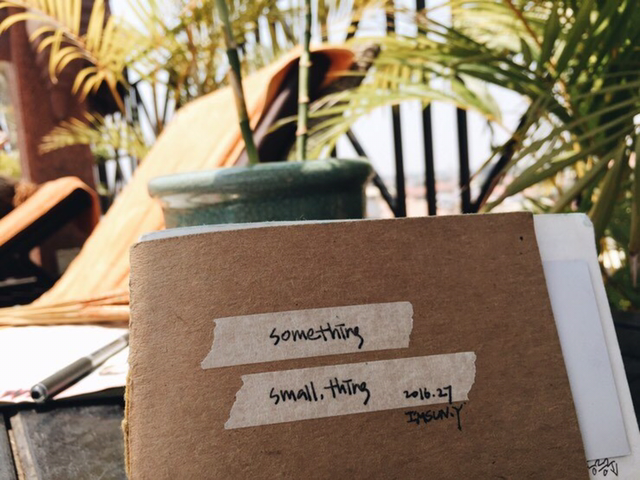 something
small, thing
2016.27
IMSUN.Y